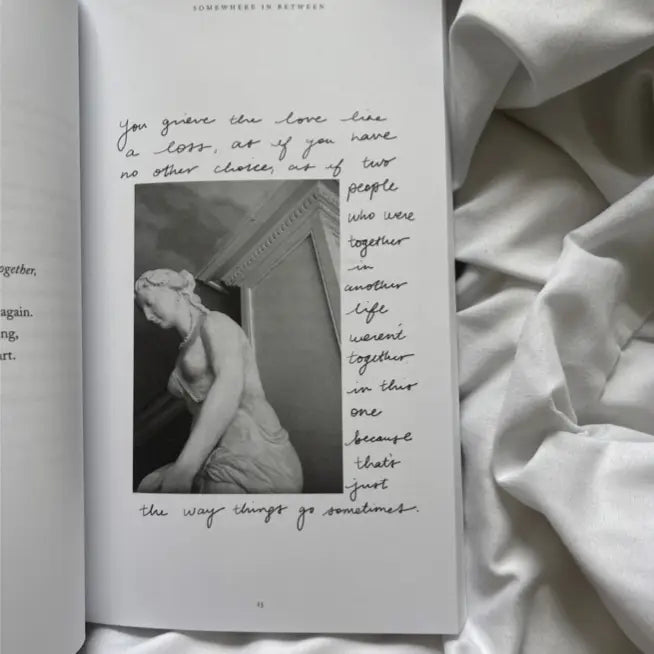 SOMEWHERE IN BETWEEN
ogether,
again.
ng,
rt.
you grieve the love like
a loss, as if you have
no other choice, as if two
people
who were
together
in
another
life
weren't
together
in this
one
because
that's
just
the way things go sometimes.